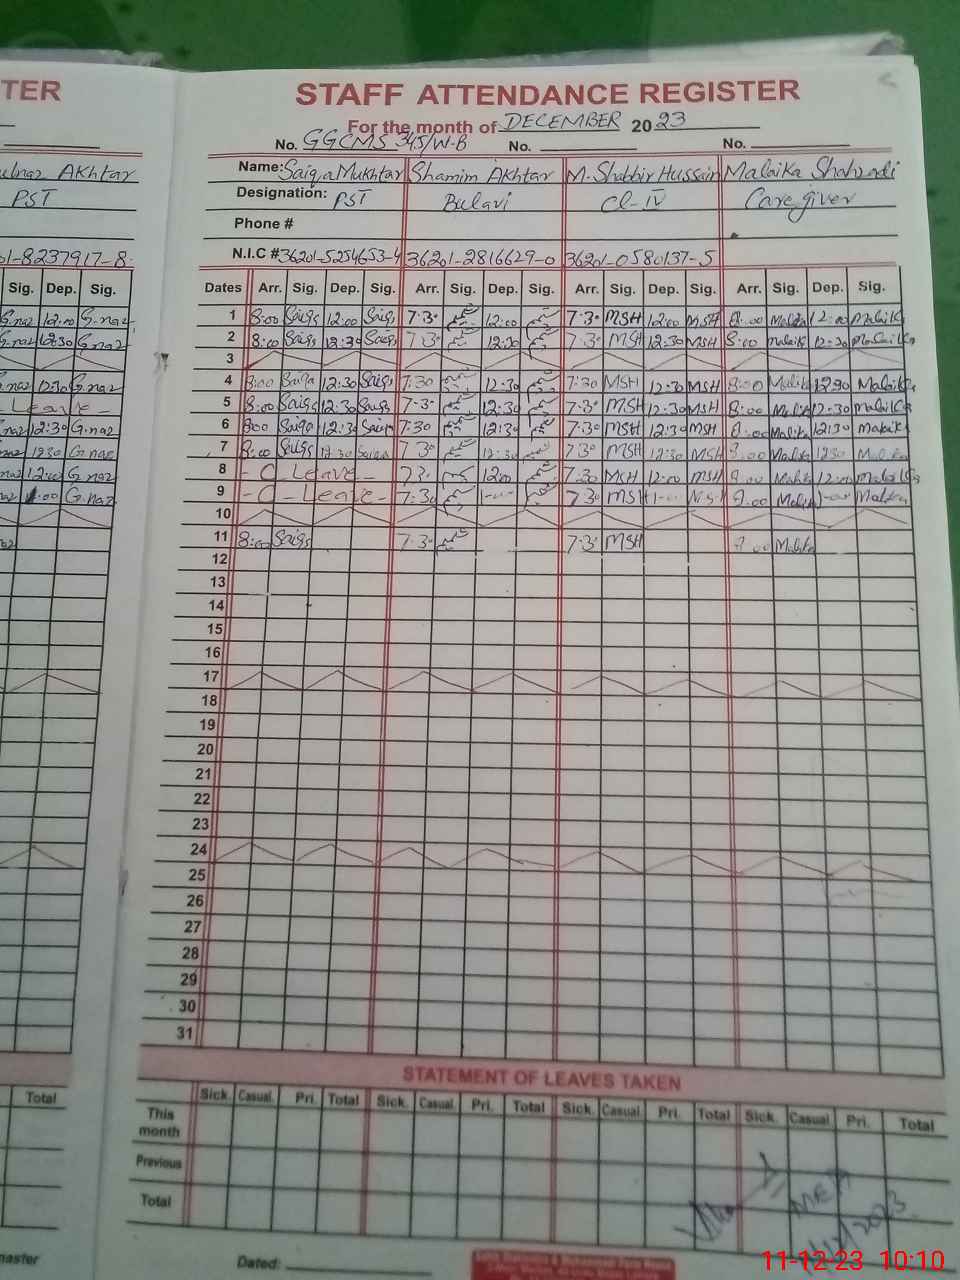 TER
STAFF ATTENDANCE REGISTER
For the month of DECEMBER 2023
No. GGCMS 345/W-B No. No.
Akhtar Name: Saiqa Mukhtar Shamim Akhtar M. Shabbir Hussain Malaika
PST Designation: PST Bulavi Cl-IV Care giver
Phone #
01-8237917-8 N.I.C # 36201-5254653-4 36201-2816629-0 36201-0580137-5
Sig. Dep. Sig. Dates Arr. Sig. Dep. Sig. Arr. Sig. Dep. Sig. Arr. Sig. Dep. Sig. Arr. Sig. Dep. Sig.
G.naz 12:00 G.naz 1 8:00 Saiqa 12:00 Saiqa 7:30 12:00 7:30 MSH 12:00 MSH 8:00 Malaika 12:00 Malaika
G.naz 12:30 G.naz 2 8:00 Saiqa 12:30 Saiqa 7:30 12:30 7:30 MSH 12:30 MSH 8:00 Malaika 12:30 Malaika
3
G.naz 12:30 G.naz 4 8:00 Saiqa 12:30 Saiqa 7:30 12:30 7:30 MSH 12:30 MSH 8:00 Malaika 12:30 Malaika
- Leave - 5 8:00 Saiqa 12:30 Saiqa 7:30 12:30 7:30 MSH 12:30 MSH 8:00 Malaika 12:30 Malaika
G.naz 12:30 G.naz 6 8:00 Saiqa 12:30 Saiqa 7:30 12:30 7:30 MSH 12:30 MSH 8:00 Malaika 12:30 Malaika
G.naz 12:30 G.naz 7 8:00 Saiqa 12:30 Saiqa 7:30 12:30 7:30 MSH 12:30 MSH 8:00 Malaika 12:30 Malaika
G.naz 12:00 G.naz 8 - C - Leave - 7:30 12:00 7:30 MSH 12:00 MSH 8:00 Malaika 12:00 Malaika
G.naz 1:00 G.naz 9 - C - Leave - 7:30 1:00 7:30 MSH 1:00 MSH 8:00 Malaika 1:00 Malaika
10
11 8:00 Saiqa 7:30 7:30 MSH 8:00 Malaika
12
13
14
15
16
17
18
19
20
21
22
23
24
25
26
27
28
29
30
31
STATEMENT OF LEAVES TAKEN
Total Sick. Casual. Pri. Total Sick. Casual. Pri. Total Sick. Casual. Pri. Total Sick. Casual Pri. Total
This month
Previous
Total
MEA
master Dated:
11-12-23 10:10